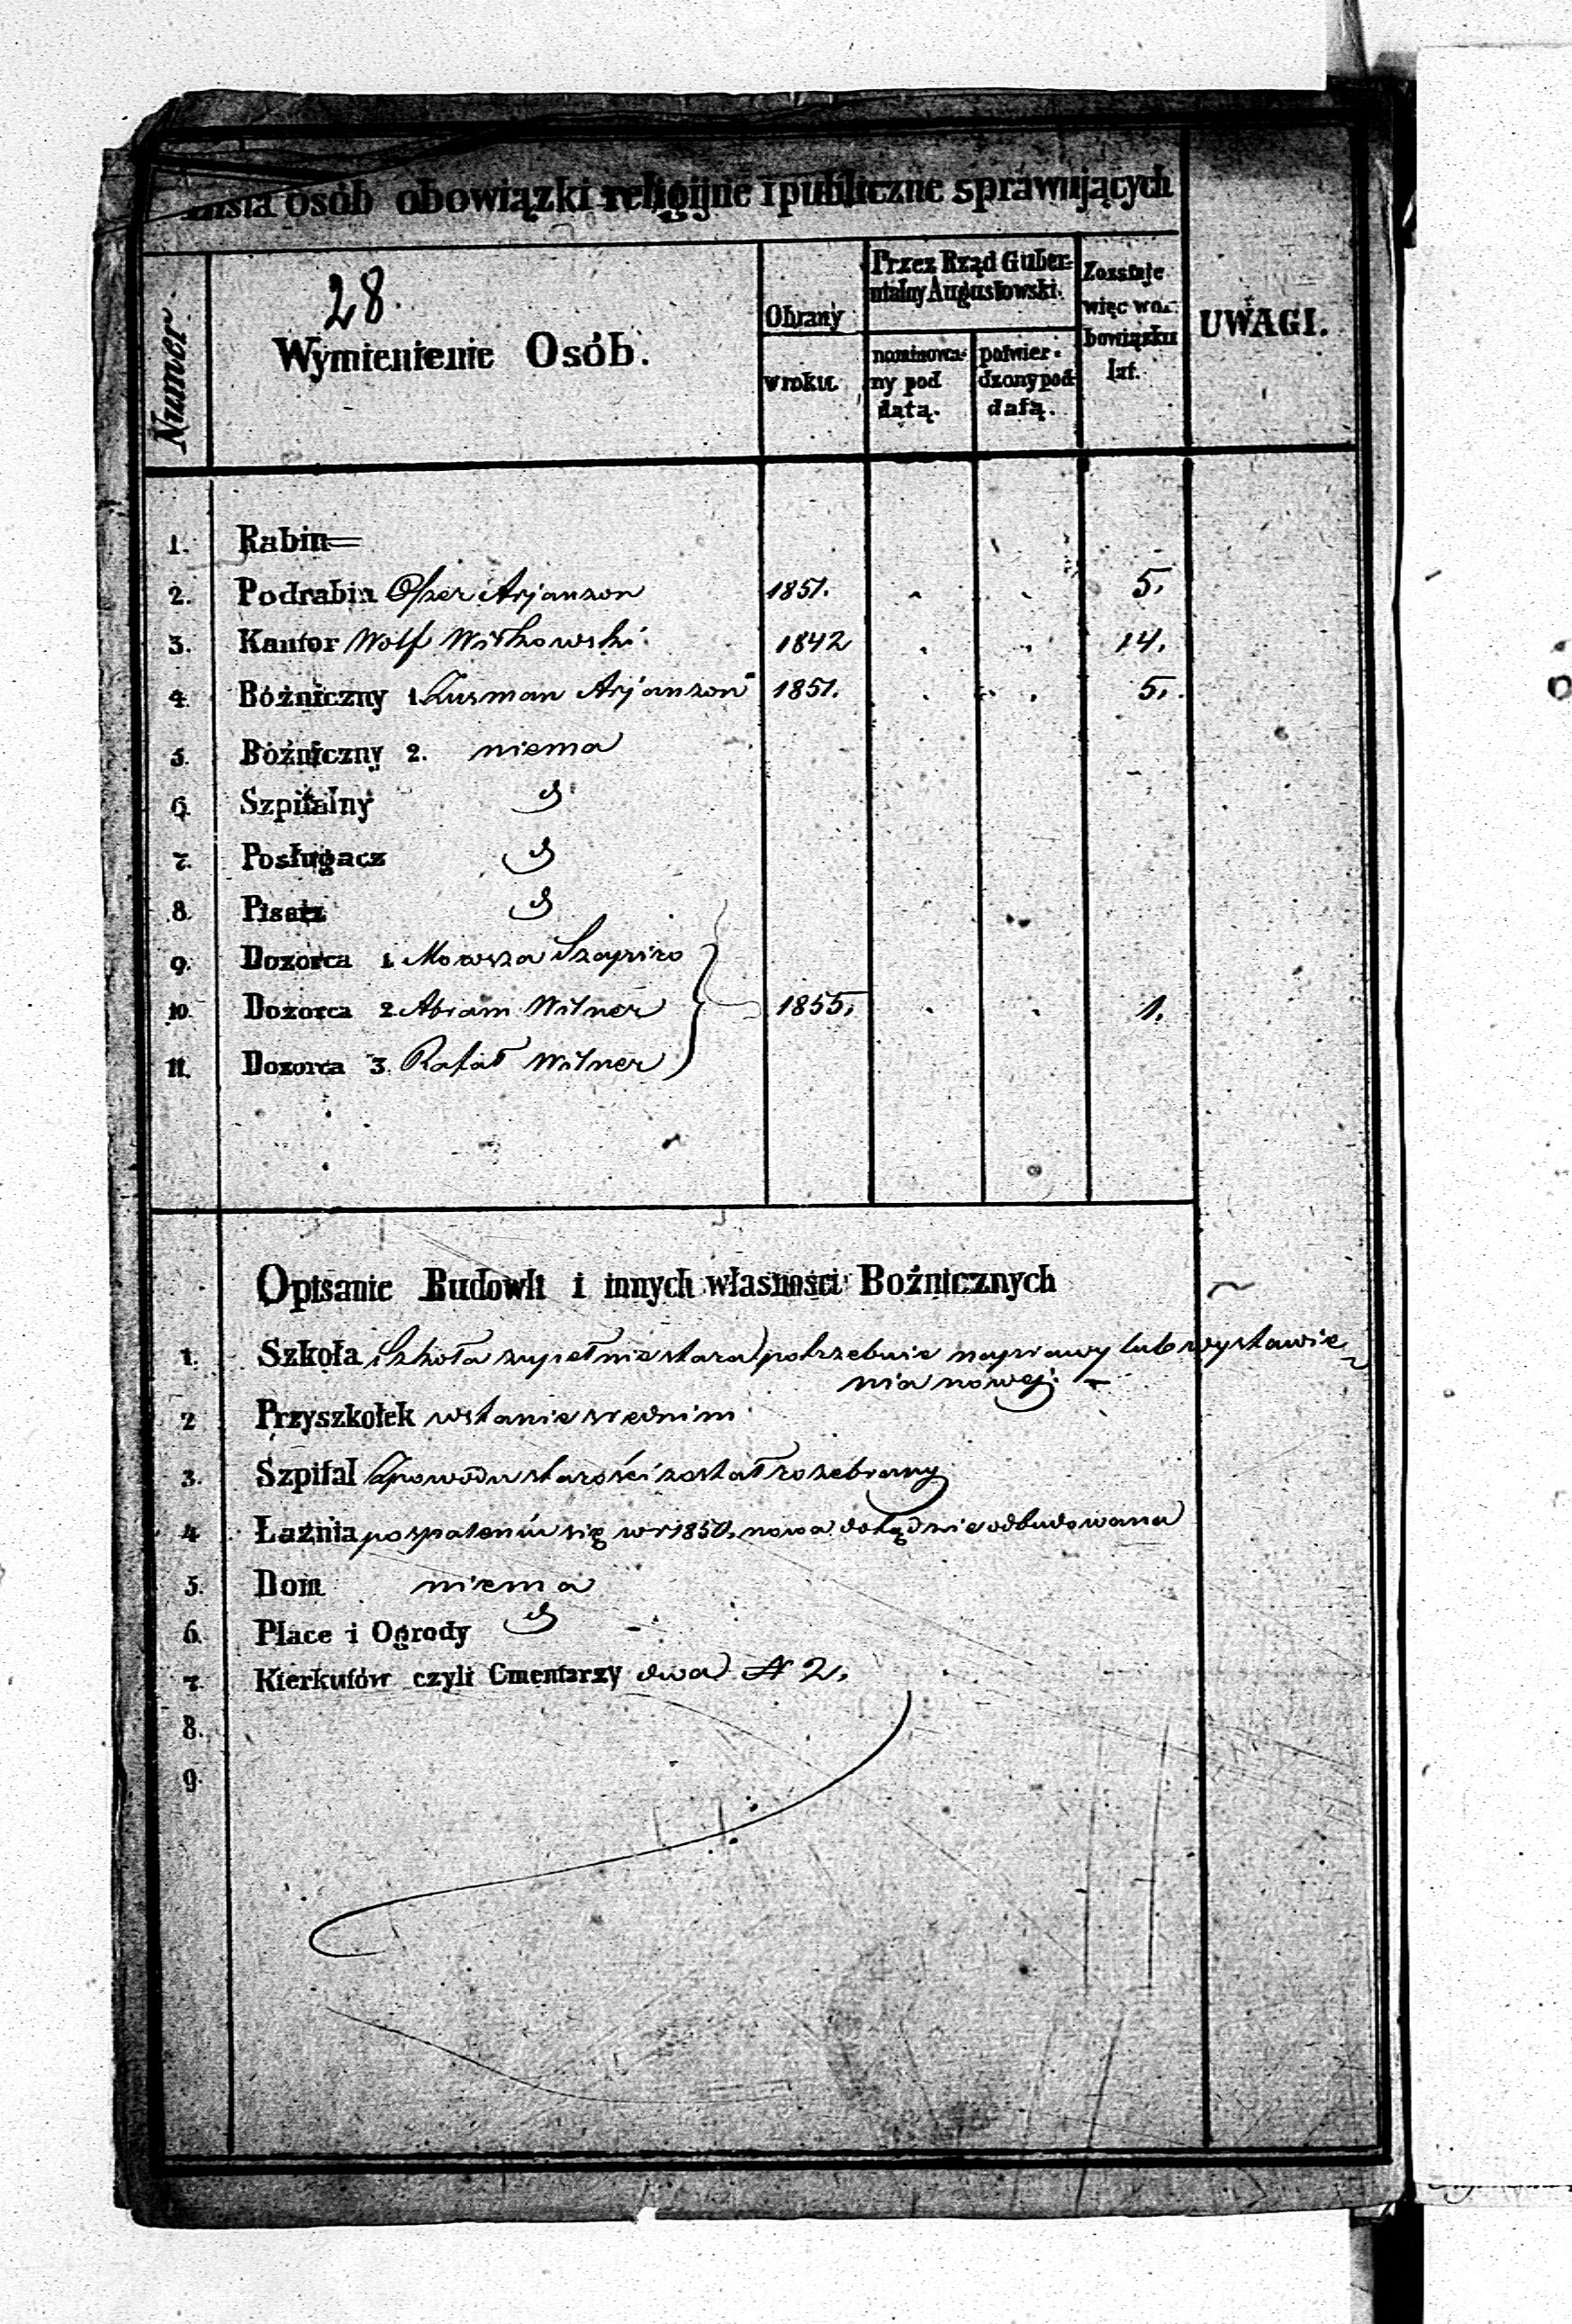 Lista osób obowiązki religijne i publiczne sprawujących
Numer
28.
Wymienienie Osób.
Obrany
w roku.
Przez Rząd Guber-
nialny Augustowski.
nominowa-
ny pod
datą.
potwier-
dzony pod
datą.
Zostaje
więc w o-
bowiązku
lat.
UWAGI.
1. Rabin
2. Podrabin Oszer Arjanson 1851. " " 5.
3. Kantor Wolf Witkowski 1842 " " 14.
4. Bóżniczny 1. Zusman Arjanson 1851. " " 5.
5. Bóżniczny 2. niema
6. Szpitalny d
7. Posługacz d
8. Pisarz d
9. Dozorca 1. Mowsza Szapiro
10. Dozorca 2. Abram Wilner 1855. " " 1.
11. Dozorca 3. Rafał Wilner
Opisanie Budowli i innych własności Bóżnicznych
1. Szkoła Szkoła zupełnie stara potrzebuie naprawy lub wystawie-
nia nowej.
2 Przyszkołek w stanie srednim
3. Szpital Z powodu starości został rozebrany
4 Łaźnia po spaleniu się w r 1850. nowa dotąd nie odbudowana
5. Dom niema
6. Place i Ogrody d
7. Kierkutów czyli Cmentarzy dwa N 2.
8.
9.